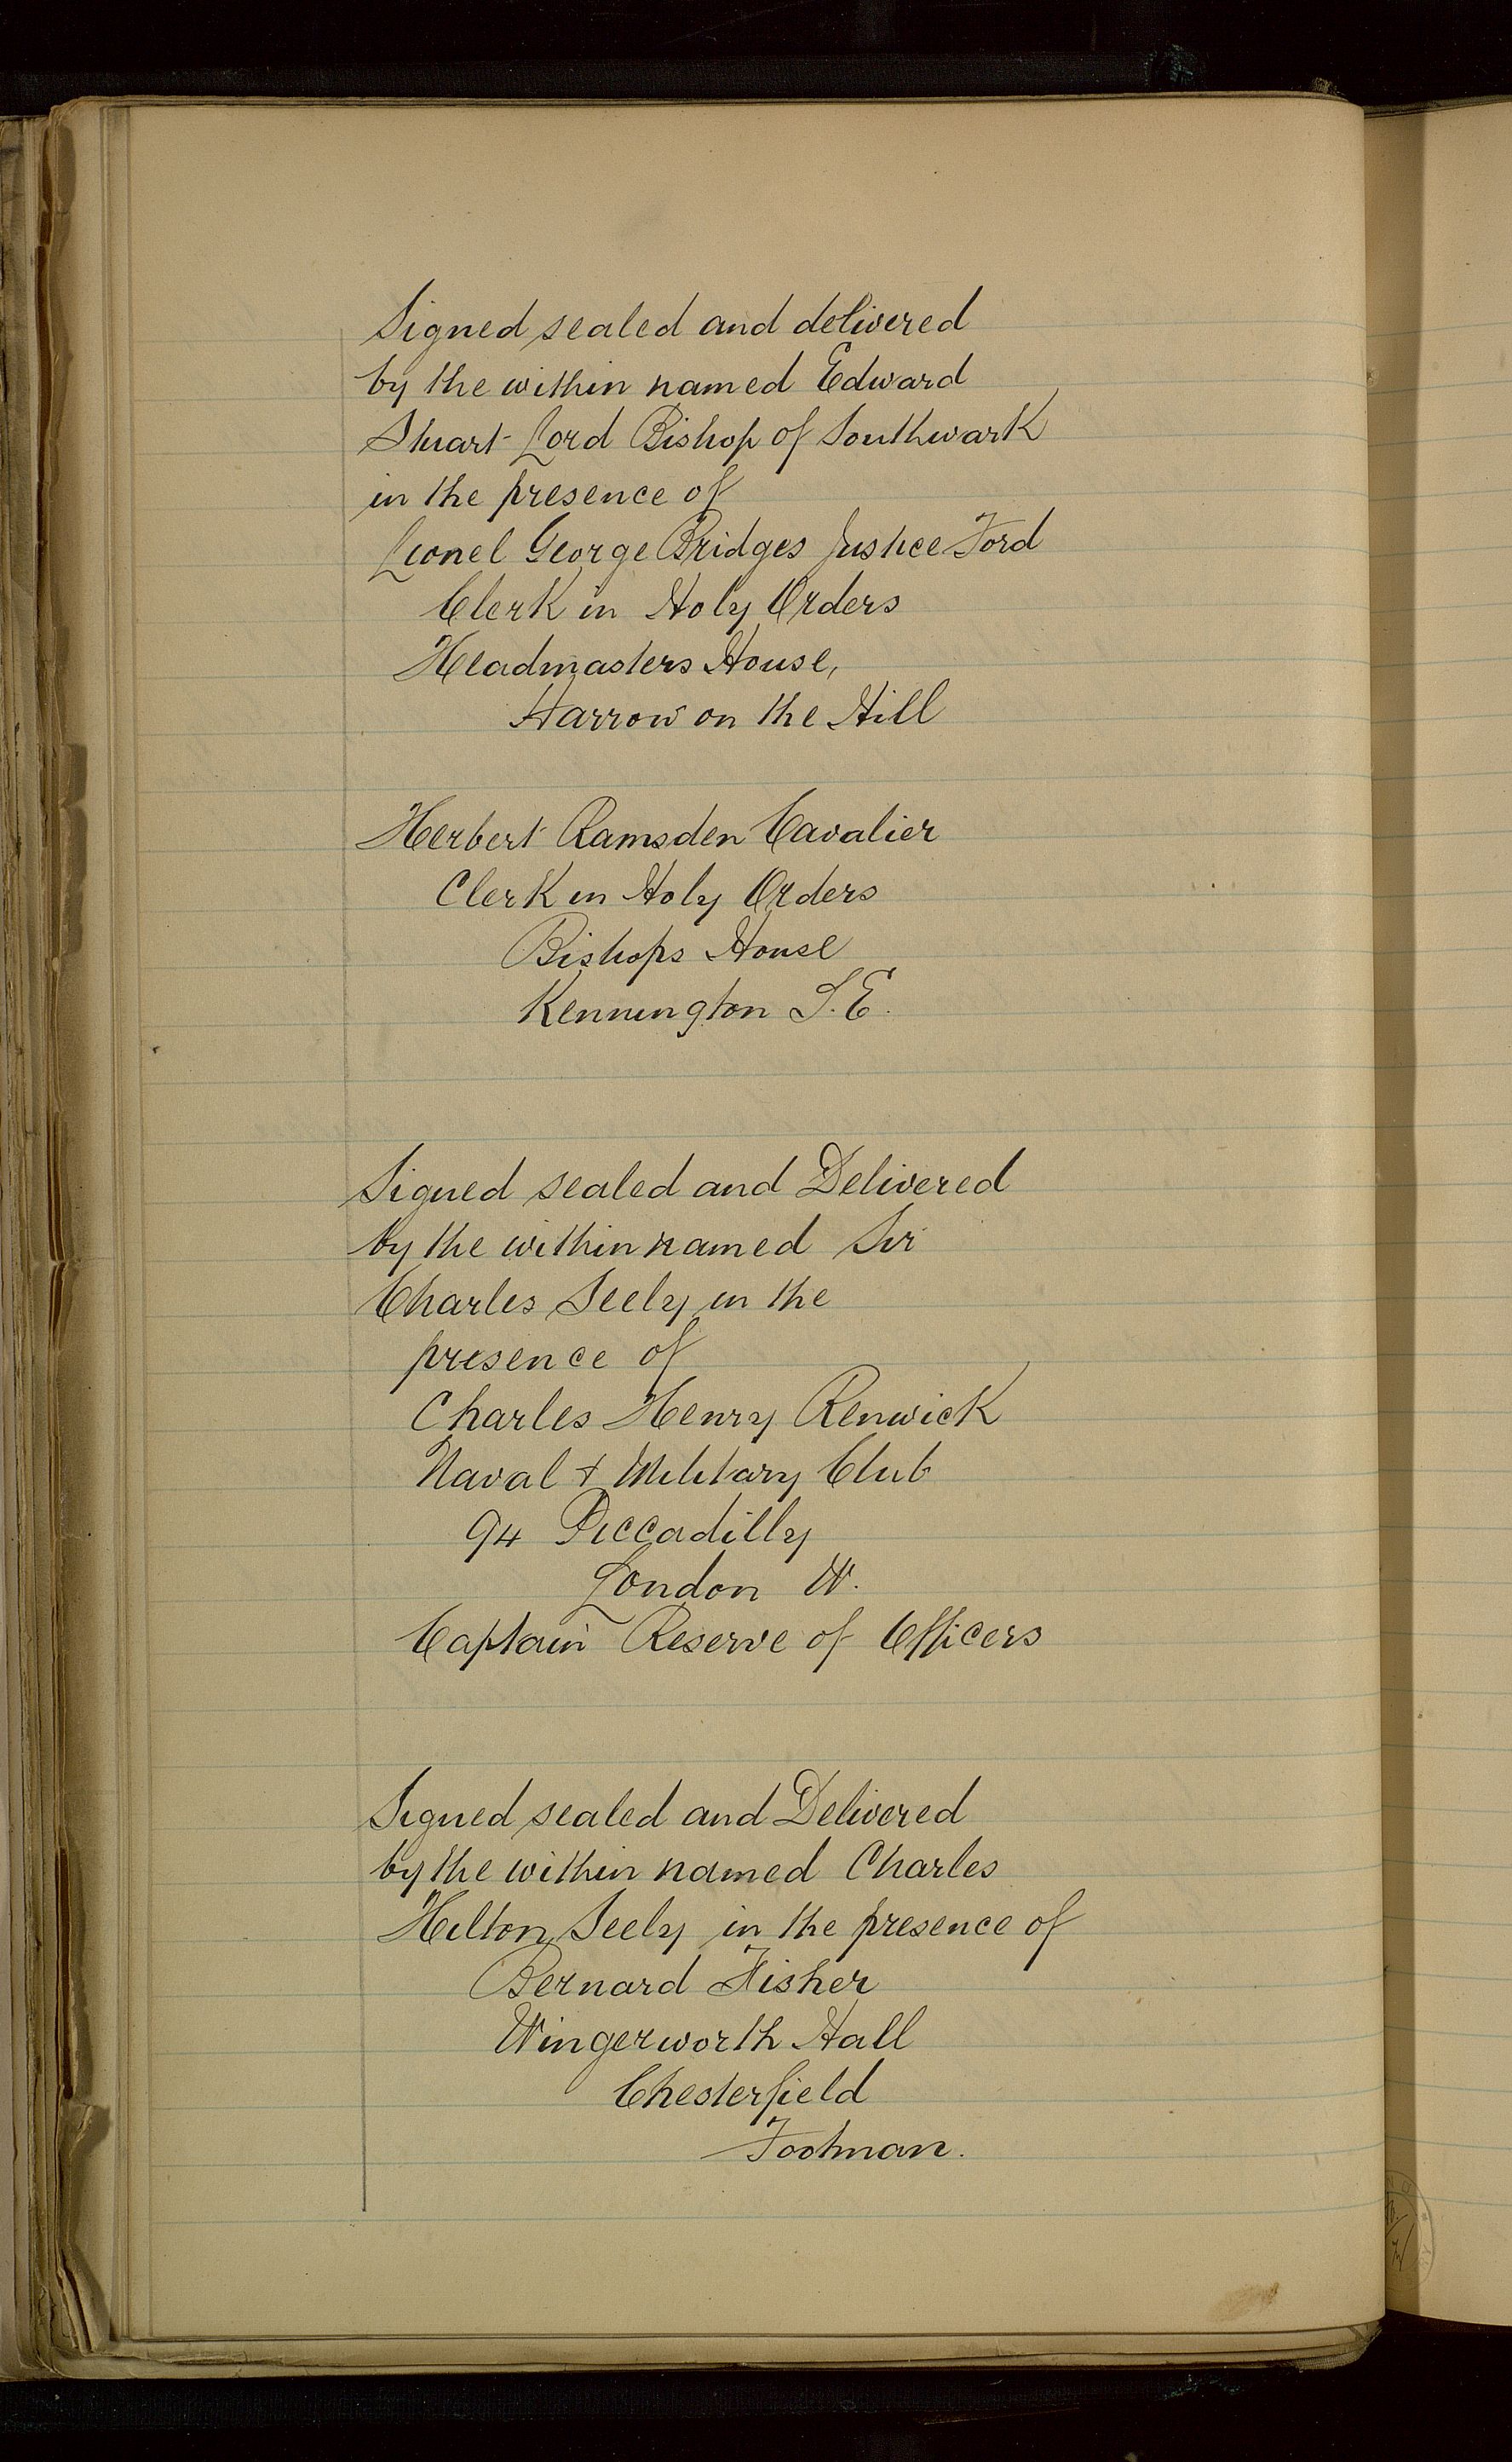 Signed sealed and delivered
by the within named Edward
Stuart Lord Bishop of Southwark
in the presence of
Lionel George Bridges Justice Ford
Clerk in Holy Orders
Headmasters House,
Harrow on the Hill
Herbert Ramsden Cavalier
Clerk in Holy Orders
Bishops House
Kennington S.E.
Signed sealed and Delivered
by the within named Sir
Charles Seely in the
presence of
Charles Henry Renwick
Naval & Military Club
94 Piccadilly
London W.
Captain Reserve of Officers
Signed sealed and Delivered
by the within named Charles
Hilton Seely in the presence of
Bernard Fisher
Wingerworth Hall
Chesterfield
Footman.